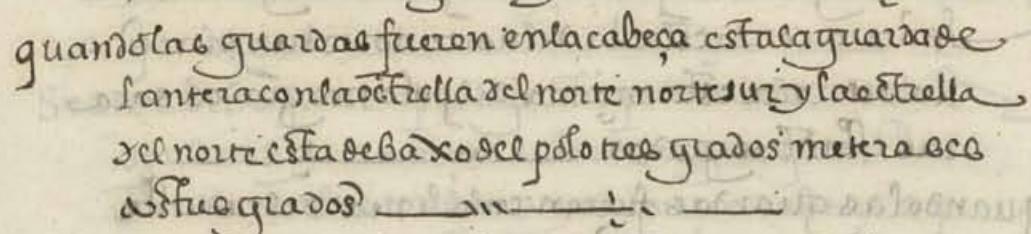 quando las guardas fueren en la cabeça esta la guarda de
lantera con la estrella del norte nortesur y la estrella
del norte esta debaxo del polo tres grados meteras es
tos tres grados